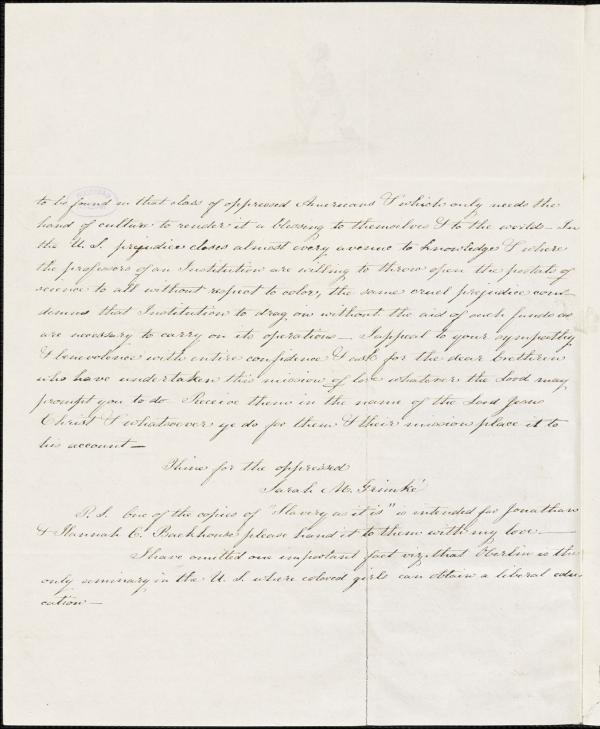 to be found in that class of oppressed Americans & which only needs the
hand of culture to render it a blessing to themselves & to the world – In
the U. S. prejudice closes almost every avenue to knowledge & where
the professors of an Institution are willing to throw open the portals of
science to all without respect to color, the same cruel prejudice con-
demns that Institution to drag on without the aid of such funds as
are necessary to carry on its operations – I appeal to your sympathy
& benevolence with entire confidence & ask for the dear brethren
who have undertaken this mission of love whatever the Lord may
prompt you to do Receive them in the name of the Lord Jesus
Christ & whatsoever ye do for them & their mission place it to
his account –
Thine for the oppressed
Sarah M. Grimké
P. S. One of the copies of "Slavery as it is" is intended for Jonathan
& Hannah C. Backhouse please hand it to them with my love –
I have omitted one important fact viz. that Oberlin is the
only seminary in the U. S. where colored girls can obtain a liberal edu-
cation –